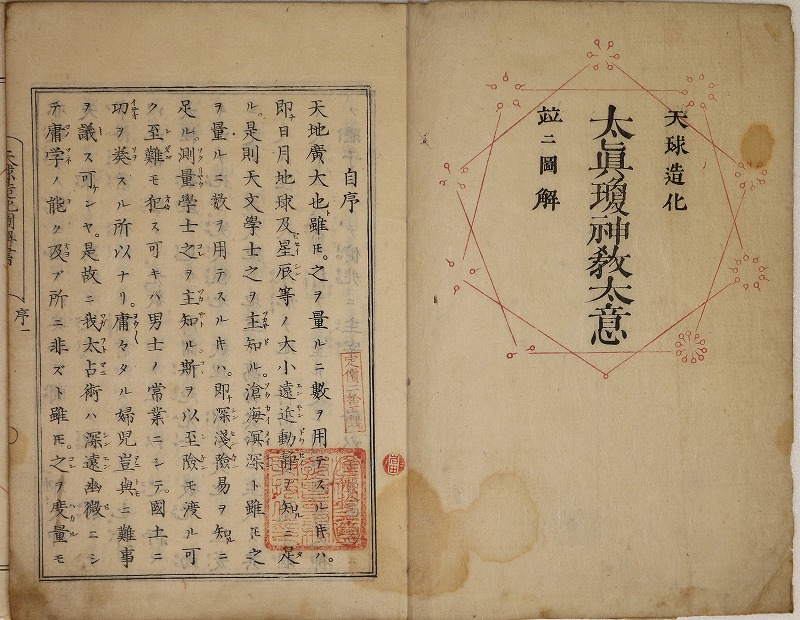 天球造化
太眞瓊神敎太意
竝ニ圖解
自序
天地廣大也雖𪜈。之ヲ量ルニ數ヲ用テスルキハ。
即日月地球及星辰等ノ大小遠近動静ヲ知ニ足
ル。是則天文學士之ヲ主知ル。滄海溟深ト雖𪜈之
ヲ量ルニ数ヲ用テスルキハ。即深淺險易ヲ知ニ
足ル。測量學士之ヲ主知ル斯ヲ以至險モ渡ル可
ク至難モ犯ス可キハ男士ノ常業ニシテ。國土ニ
功ヲ奏スル所以ナリ。庸々タル婦児豈與ニ難事
ヲ議ス可ンヤ。是故ニ我太占術ハ深遠幽微ニシ
テ庸学ノ能ク及ブ所ニ非ズト雖𪜈。之ヲ度量モ
序一